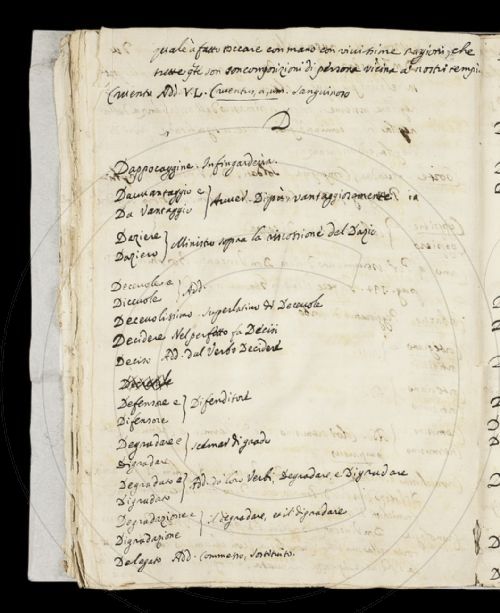 quale à fatto toccare con mano con vivissime ragioni, che
tutte son composizioni di persona vicina a' nostri tempi.
Cruento Add. V.L. Cruentus, a, um. Sanguinoso
D
Dappocaggine. Infingardería.
Davvantaggio e
Da Vantaggio } Avver. Di più vantaggiosamente
Daziere
Daziero } Ministro sopra la riscossione del Dazio
Decevole e
Dicevole } Add.
Decevolissimo Superlativo di Decevole
Decidere Nel perfetto fa Decisi
Deciso Add. dal Verbo Decidere
Defensore e
Difensore } Difenditore
Degradare e
Digradare } scemar di grado
Degradato e
Digradato } Add. da loro Verbi, Degradare, e Digradare
Degradazione e
Digradazione } il degradare, e il digradare
Delegato Add. Commesso, sostituito.